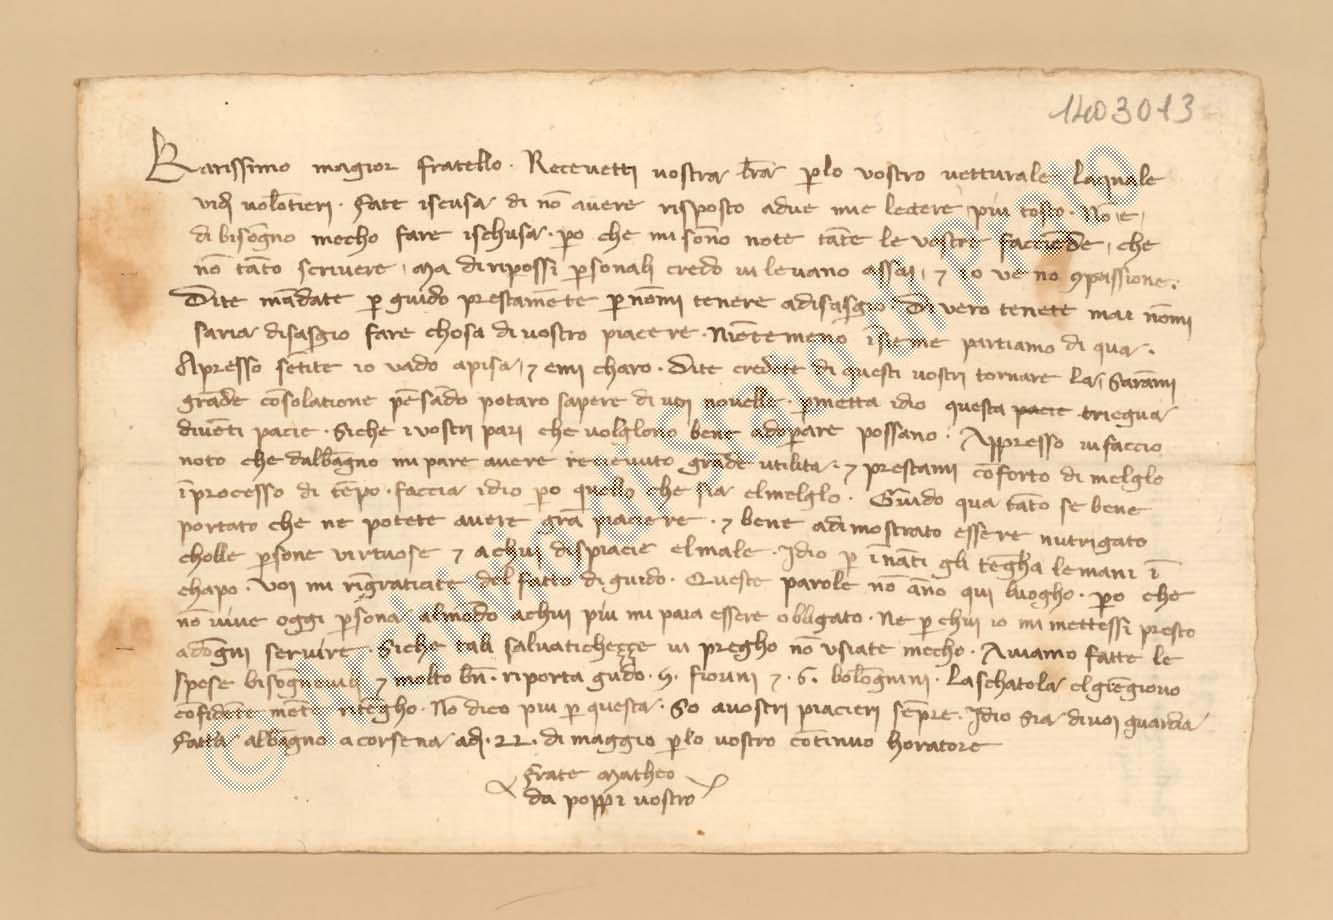 1403013
Karissimo magior fratello. Recevetti vostra lr̄a p̱lo vostro vetturale laquale
vidj volōtieri. fate iscusa di nō avere risposto adue mie lectere piu tosto. No e,
di bisōgno mecho fare ischusa. p̱o che mi sōno note tāte le vostre faccīede, che
nō tāto scrivere, ma di ripossi p̱sonalj credo vi levano assai, ⁊ io ve no ꝯpassione.
Dite mādate p̱ guido prestamēte p̱ nōmi tenere adisasgio. Di vero tenete mai nōmi
saria disasgio fare chosa di vostro piacere. Niētemeno īsieme partiamo di qua.
Apresso sētite io vado apisa, ⁊ emi charo. Dite credete di questi vostri tornare la, Sarāmi
grāde cōsolatione pēsādo potaro sapere di voi novelle. p̱metta idio questa pacie triegua
divēti pacie. Siche i vostri pari che volglono bene adop̱are possano. Appresso vi faccio
noto che dalbāgno mi pare avere recievuto grāde utilita. ⁊ prestami cōforto di melglo
īprocesso di tēpo. faccia idio p̱o quello che sia elmelglo. Guido qua tāto se bene
portato che ne potete avere grā piaciere. ⁊ bene adimostrato essere nutrigato
cholle p̱sone virtuose ⁊ achui dispiacie elmale. Idio p̱ īnāti gli tēgha lemani ī
chapo. Voi mi rīgraticate del fatto di guido. Queste parole nō āno qui luogho. p̱o che
nō vive oggi p̱sona almōdo achui piu mi para essere obligato. Ne p̱ chui io mi mettessi presto
adōgni servire. Siche tali salvatichezze vi pregho nō usiate mecho. Aviamo fatte le
spese bisognevilj ⁊ molto bn̄. riporta gudo. 9. fiorini ⁊. 6. bolōgnini. Laschatola el giēgiovo
cōfidēte mēte ritēgho. Nō dico piu p̱ questa. So avostri piacieri sēpre. Idio sia divoi guardia
fatta albāgno acorsena adj. 22. di maggio p̱lo vostro cōtinuo horatore
frate Matheo
da poppi vostro
©Archivio di Stato di Prato